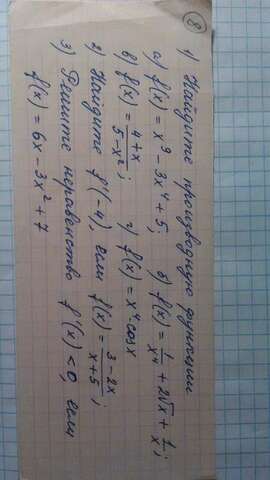 8
1) Найдите производную функции
а) f(x) = x³ - 3x⁴ + 5; б) f(x) = 1/x⁴ + 2√x + 1/x;
в) f(x) = (4+x)/(5-x²); г) f(x) = x⁴·cosx
2) Найдите f'(-4), если f(x) = (3-2x)/(x+5);
3) Решите неравенство f'(x) < 0, если
f(x) = 6x - 3x² + 7